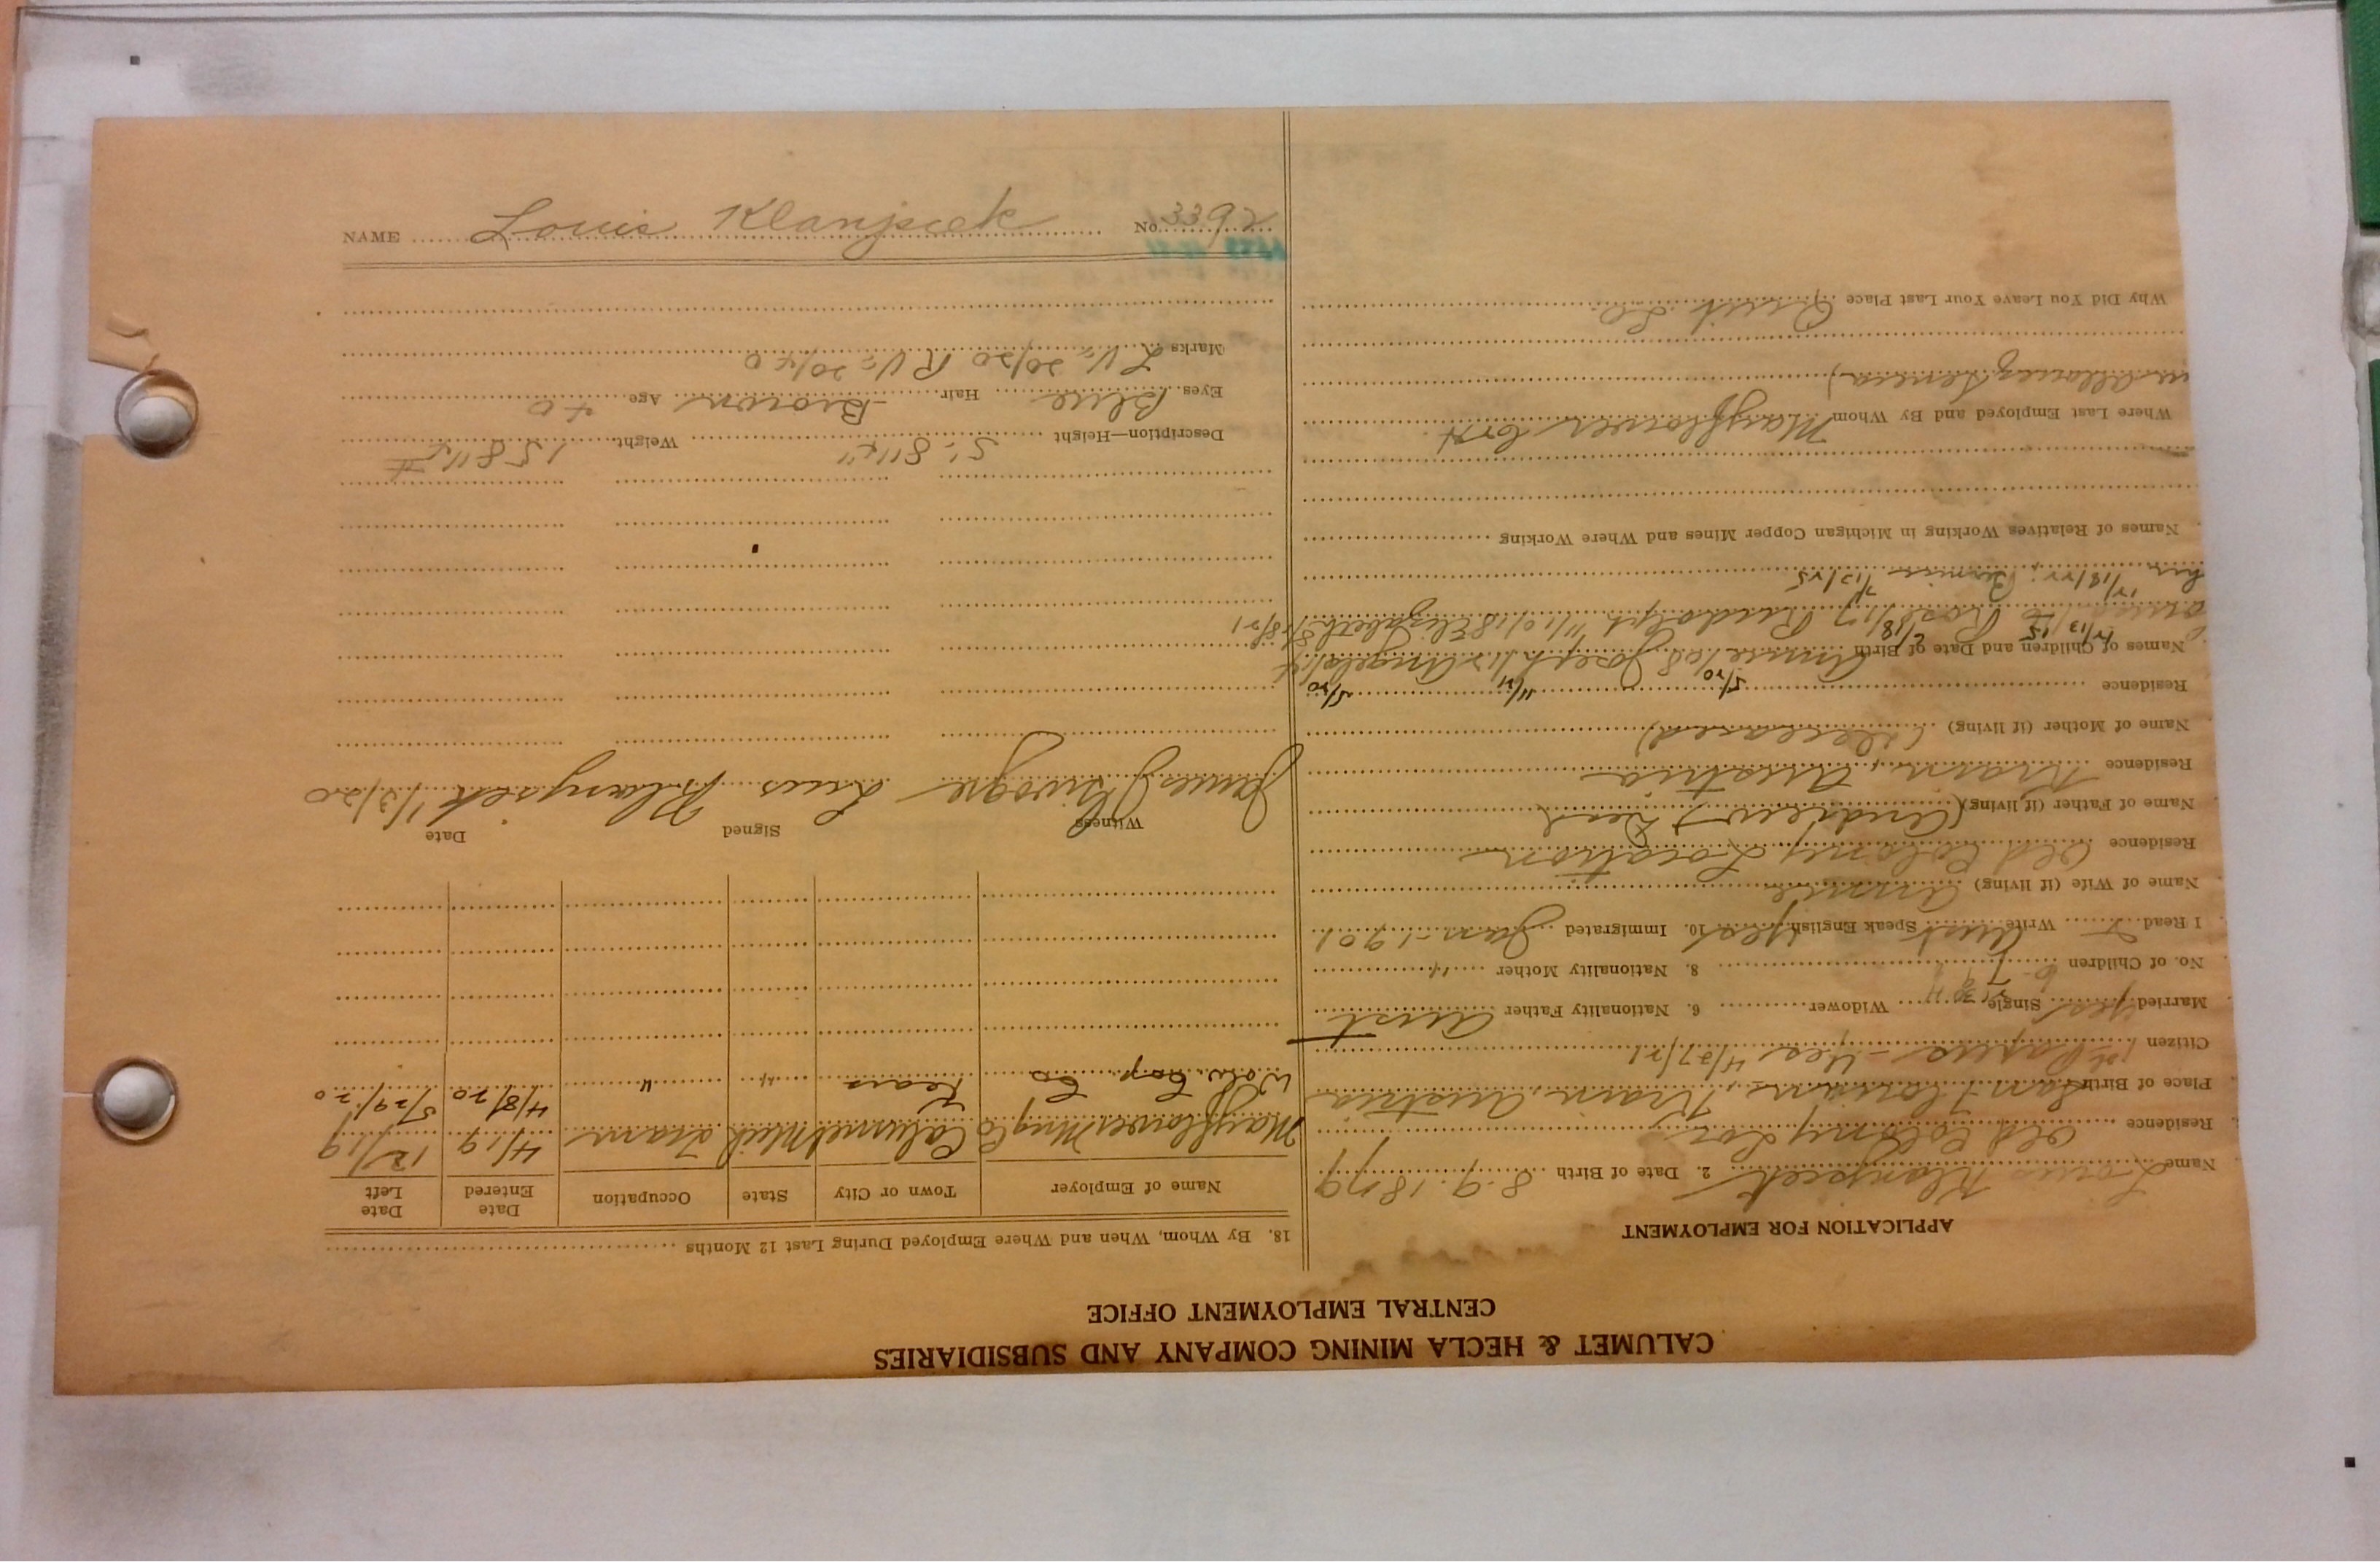 CALUMET & HECLA MINING COMPANY AND SUBSIDIARIES
CENTRAL EMPLOYMENT OFFICE
APPLICATION FOR EMPLOYMENT
Name Louis Klanjscek 2. Date of Birth 8-9-1879
Residence Old Colony Loc
Place of Birth Krain, Austria
Citizen 1st Papers - Yes 4/27/21
Married yes Single Widower 6. Nationality Father Aust
No. of Children 8. Nationality Mother "
I Read Write Aust Speak English Yes 10. Immigrated Jan-1901
Name of Wife (if living) Annie
Residence Old Colony Location
Name of Father (if living) (Andrew) Dead
Residence Krain, Austria
Name of Mother (if living) (deceased)
Residence
5/20 11/21 5/20
Names of Children and Date of Birth Annie /08 Joseph /12 Angela /14
12/13/15 Rose 2/18/17 Rudolph 11/10/18 Elizabeth 8/18/21
12/18/22 7/13/25
Names of Relatives Working in Michigan Copper Mines and Where Working
Where Last Employed and By Whom Mayflower
Why Did You Leave Your Last Place Quit
18. By Whom, When and Where Employed During Last 12 Months
Name of Employer Town or City State Occupation Date Entered Date Left
Mayflower Mng Co Calumet Mich Tram 4/19 12/19
Wolv. Cop. Co Kears " " 4/8/20 5/29/20
Witness Signed Date
James Louis Klanjsek 1/3/20
Description—Height 5'-8 1/2" Weight 158 1/2 #
Eyes Blue Hair Brown Age 40
Marks L V= 20/20 R V= 20/40
NAME Louis Klanjscek No. 3392